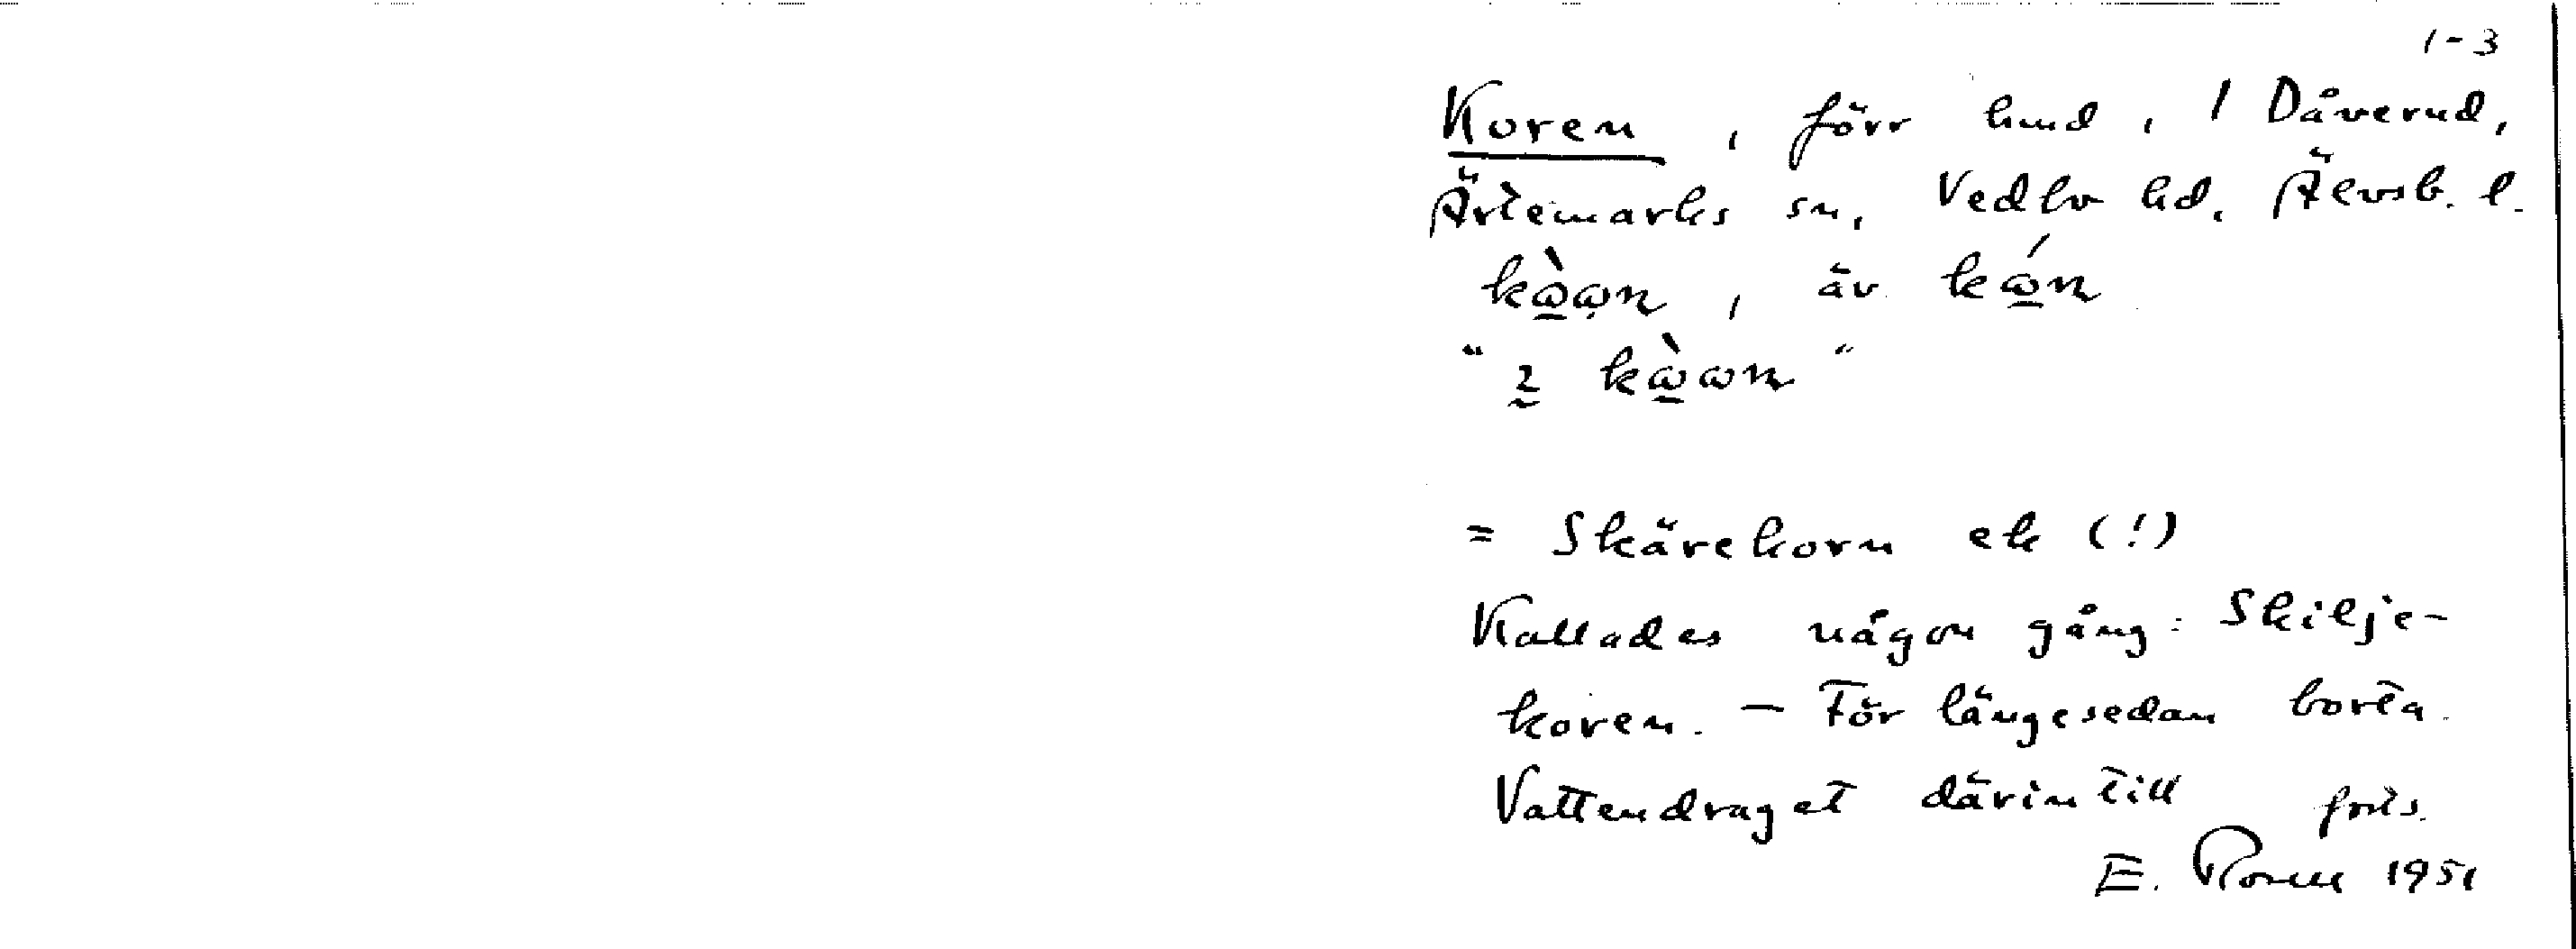 1-3
Koren, förr lmd, 1 Dåverud,
Ärtemarks sn, Vedbo hd, Älvsb. l.
kὼωn, äv. kώn
"2 kὼωn"
= Skärekorn ek (!)
Kallades någon gång: Skilje-
koren. - För längesedan borta.
Vattendraget därintill forts.
E. 1951